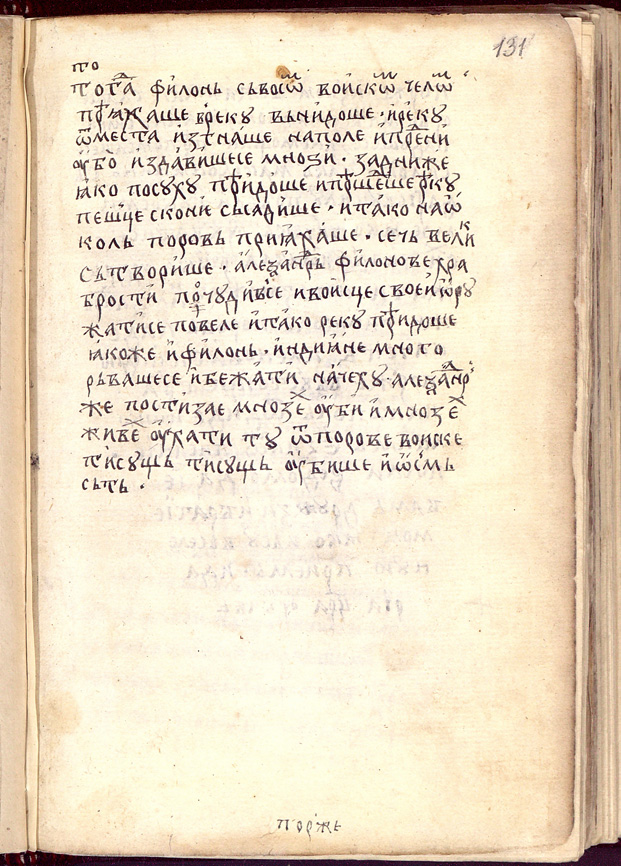 131
то
тога филонь сьвоѡ воискѡ челѡ
приꙗхаше вреку вьнидоше · иреку
ѿместа изгнаше наполе ипрени
ѹбо издавишесе мноѕи · задниже
ꙗко посуху придоше ипршⷣеше реку
пешце скони сьсадише · итако наѡ
коль поровь приꙗхаше · сечь велик
сьтворише · алеѯанⷣрь филонове хра
брости почудивсе ивоисце своеи ѡру
жатисе повеле итако реку придоше
ꙗкоже ифилонь · индиꙗне много
рьвашесе ибежати начеху · алеѯанⷣр
же постизае мнозеⷯ ѹби имнозеⷯ
живеⷯ ѹхати ту ѿ порове воиске
тисущь тисущь ѹбише иѡсмь
сьть ·
порже